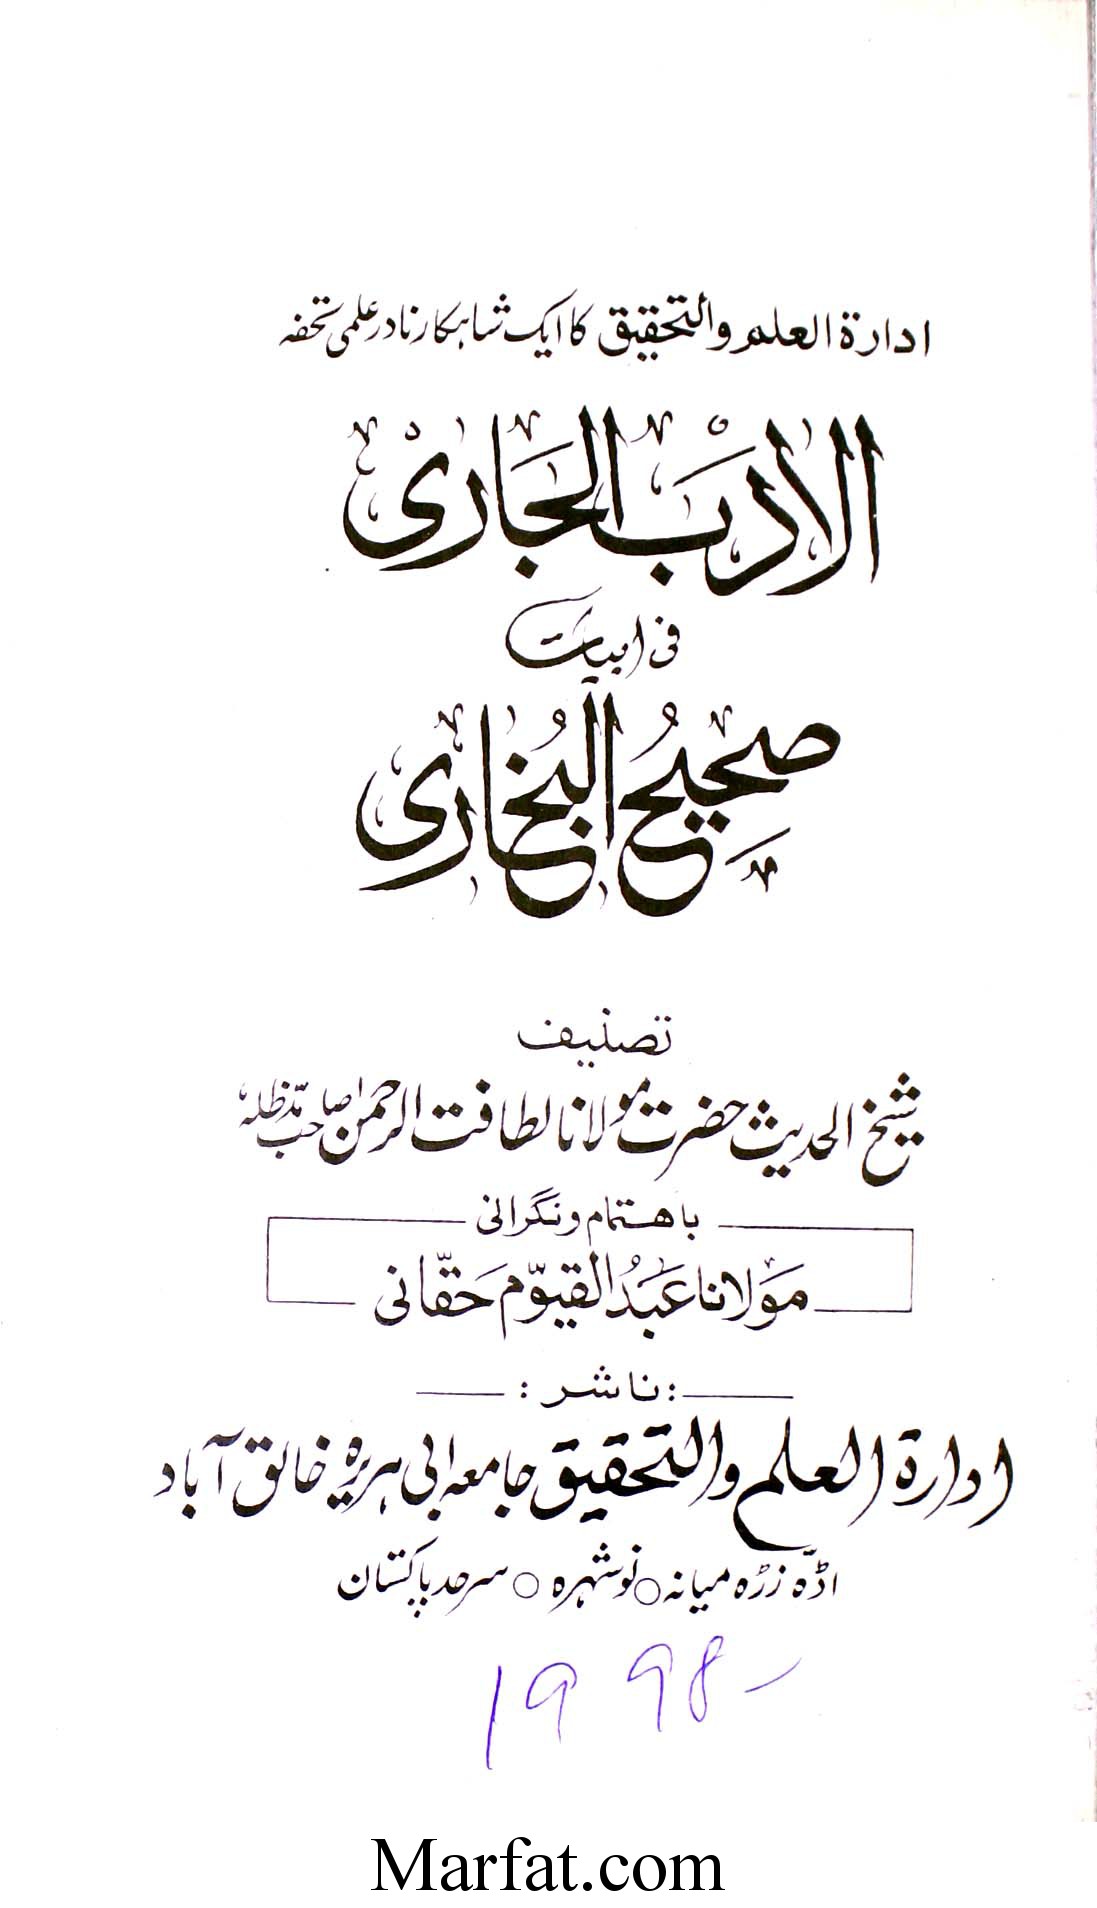 ادارة العلم والتحقیق کا ایک شاہکار نادر علمی تحفہ
اَلْاَدَبُ الْجَارِیْ
فی ابیات
صَحِیْحُ الْبُخَارِیْ
تصنیف
شیخ الحدیث حضرت مولانا لطافت الرحمن صاحب مدّظلہ
باہتمام و نگرانی
مَولانا عَبدُ القیّوم حَقّانی
: ناشر :
ادارة العلم والتحقیق جامعہ ابی ہریرہ خالق آباد
اڈّہ زڑہ میانہ ○ نوشہرہ ○ سرحد پاکستان
1998-
Marfat.com